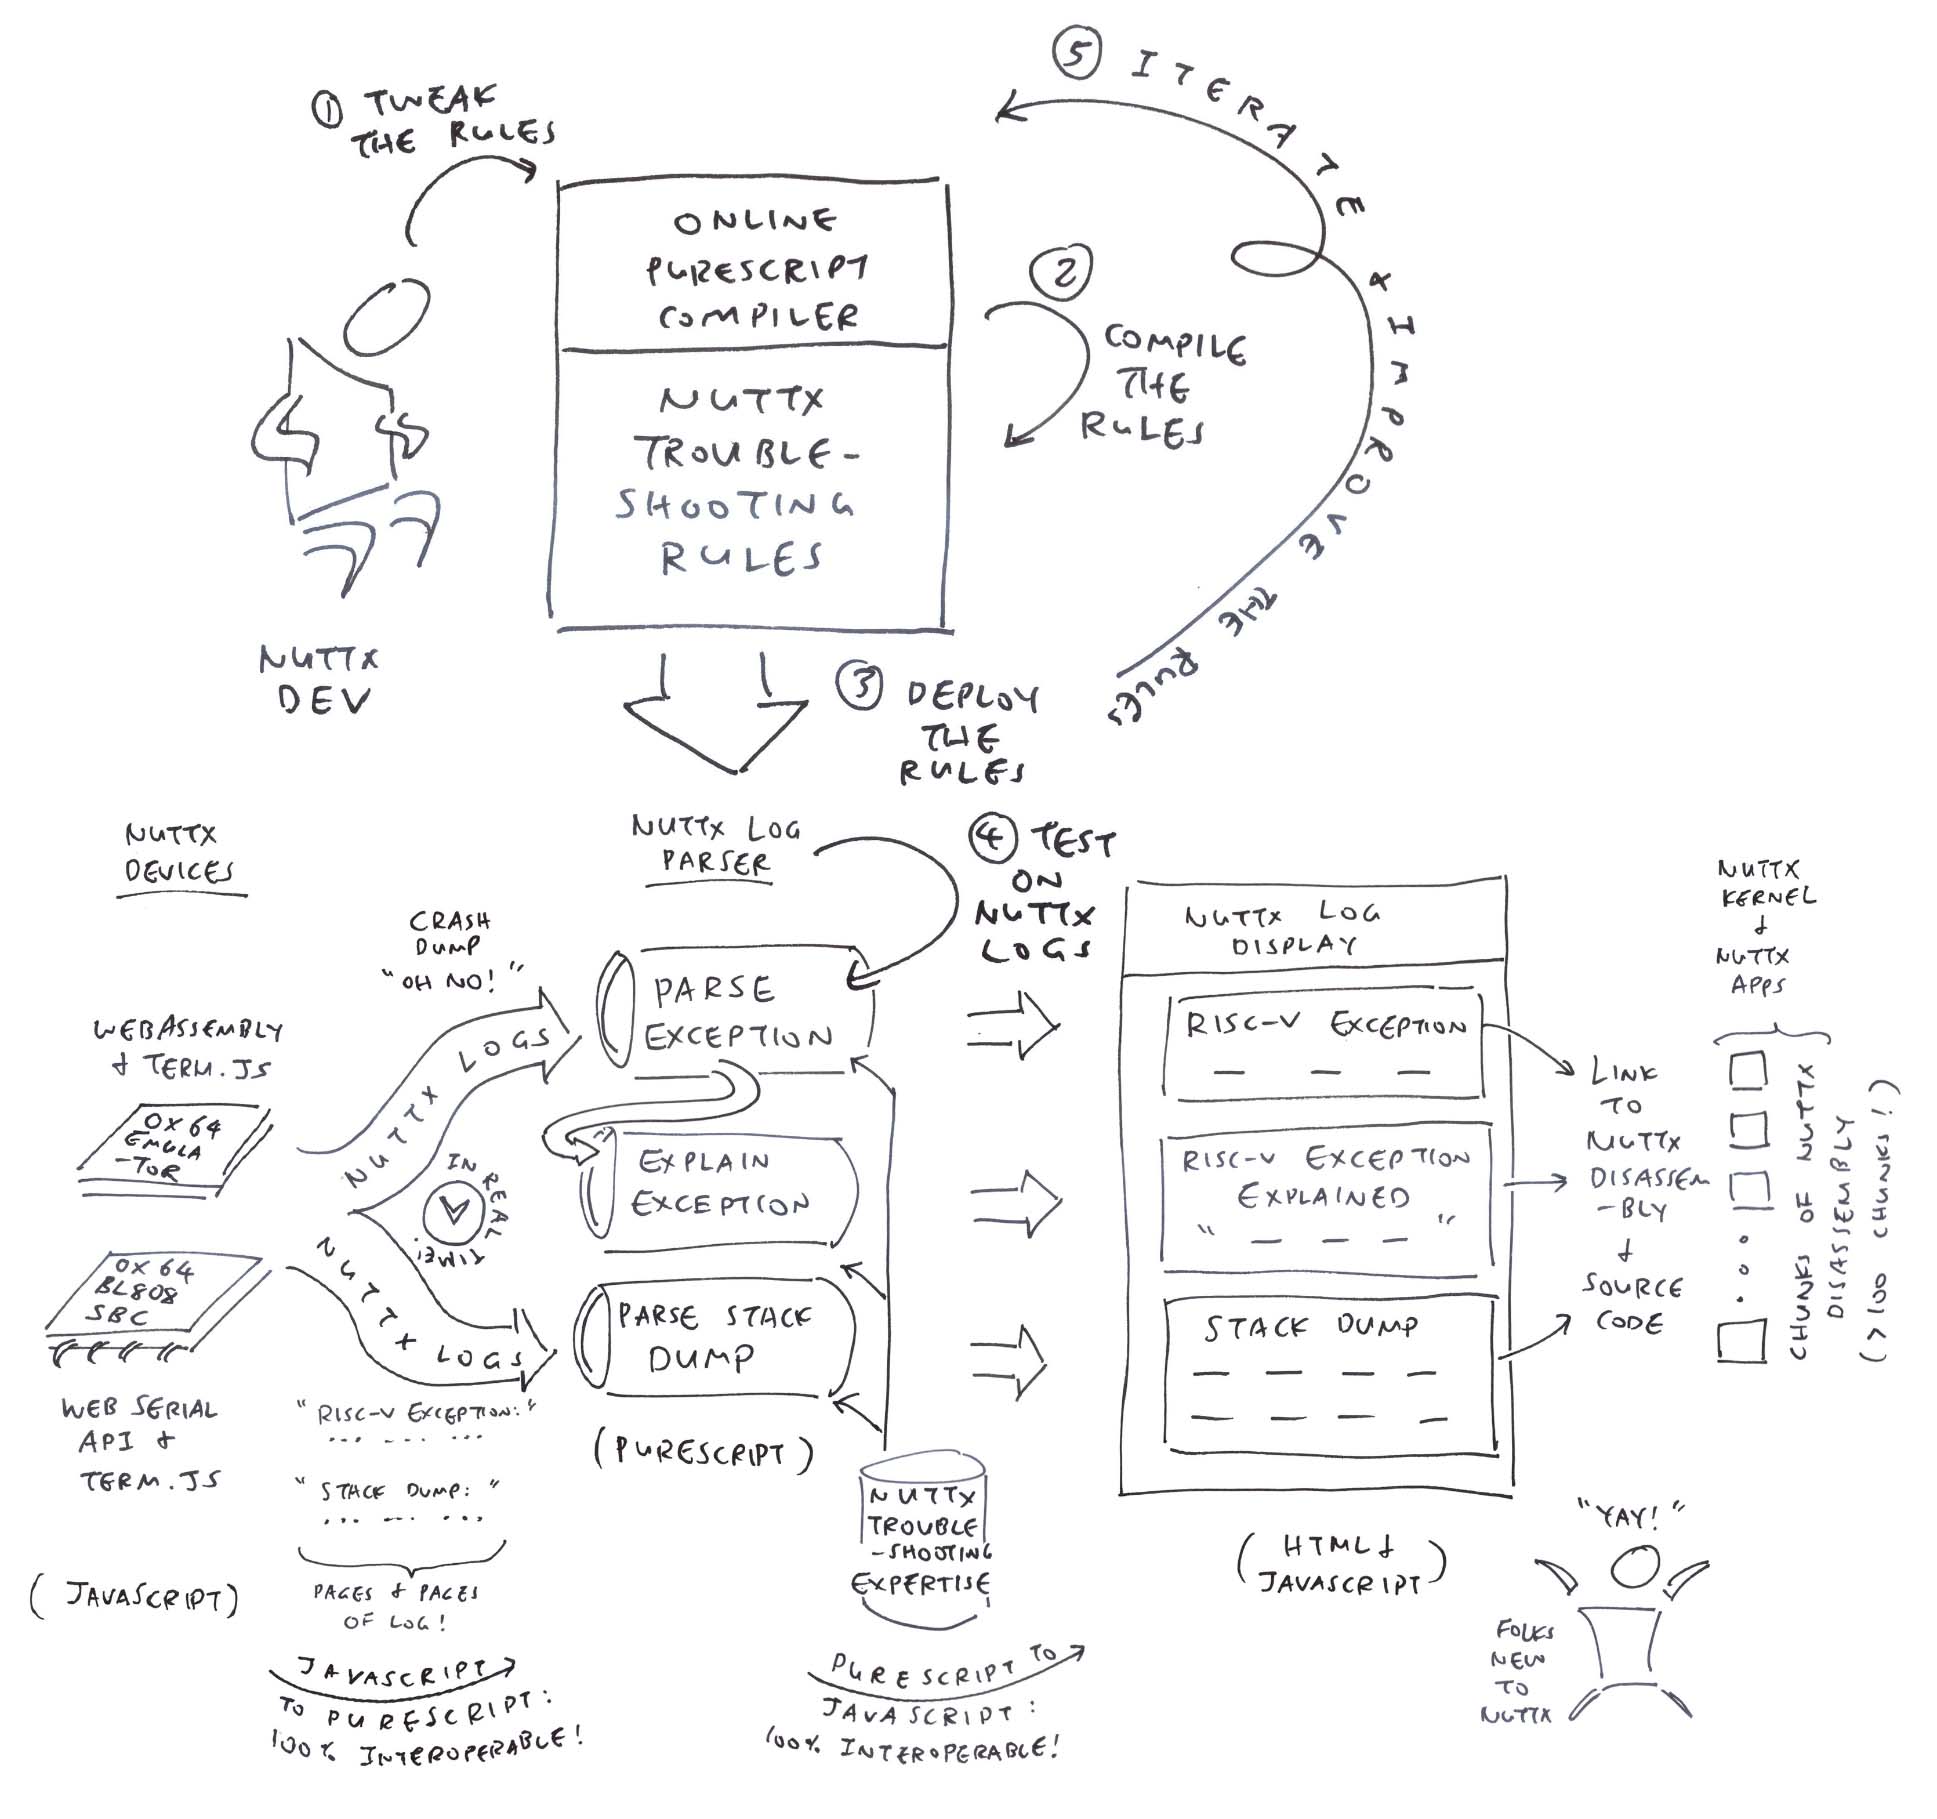 ① TWEAK
THE RULES
⑤ ITERATE & IMPROVE THE RULES
ONLINE
PURESCRIPT
COMPILER
②
COMPILE
THE
RULES
NUTTX
TROUBLE-
SHOOTING
RULES
NUTTX
DEV
③ DEPLOY
THE
RULES
NUTTX
DEVICES
NUTTX LOG
PARSER
④ TEST
ON
NUTTX
LOGS
CRASH
DUMP
"OH NO!"
WEBASSEMBLY
& TERM.JS
0X64
EMULA
-TOR
NUTTX LOGS
IN REAL TIME!
0X64
BL808
SBC
NUTTX LOGS
WEB SERIAL
API &
TERM.JS
"RISC-V EXCEPTION:"
... ... ...
"STACK DUMP: "
... ... ...
PAGES & PAGES
OF LOG!
(JAVASCRIPT)
JAVASCRIPT
TO PURESCRIPT:
100% INTEROPERABLE!
PARSE
EXCEPTION
EXPLAIN
EXCEPTION
PARSE STACK
DUMP
(PURESCRIPT)
NUTTX
TROUBLE
-SHOOTING
EXPERTISE
PURESCRIPT TO
JAVASCRIPT:
100% INTEROPERABLE!
NUTTX LOG
DISPLAY
RISC-V EXCEPTION
— — —
RISC-V EXCEPTION
EXPLAINED
" — — — "
STACK DUMP
— — — —
— — — —
(HTML &
JAVASCRIPT)
LINK
TO
NUTTX
DISASSEM
-BLY
&
SOURCE
CODE
NUTTX
KERNEL
&
NUTTX
APPS
CHUNKS OF NUTTX
DISASSEMBLY
(>100 CHUNKS!)
"YAY!"
FOLKS
NEW
TO
NUTTX